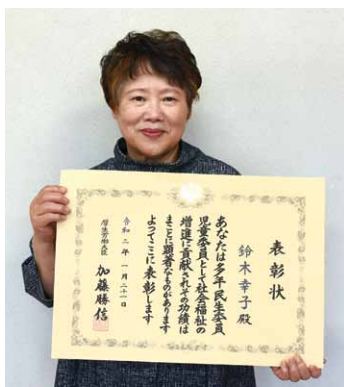 表彰状
鈴木幸子殿
あなたは多年民生委員
児童委員として社会福祉の
増進に貢献されその功績は
まことに顕著なものがあります
よってここに表彰します
令和二年一月二十一日
厚生労働大臣 加藤勝信